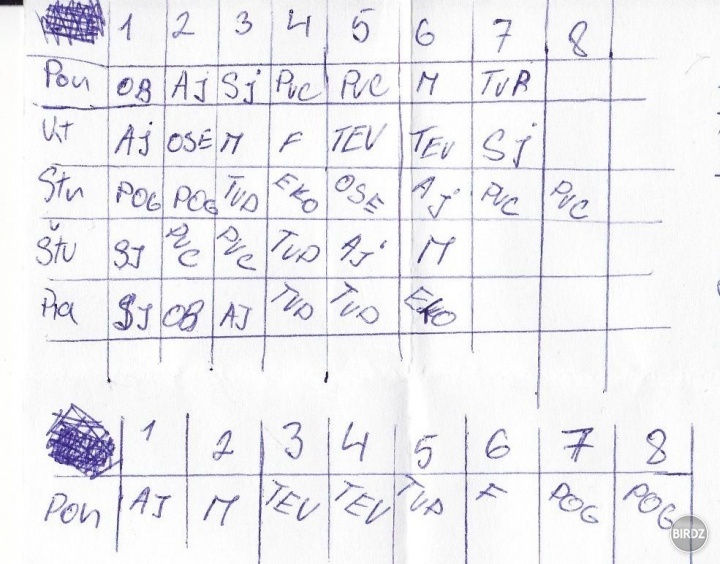 1 2 3 4 5 6 7 8
Pon OB AJ SJ PVC PVC M TVD
Ut AJ OSE M F TEV TEV SJ
Stu POG POG TVD EKO OSE AJ PVC PVC
Štv SJ PVC PVC TVD AJ M
Pia SJ OB AJ TVD TVD EKO
1 2 3 4 5 6 7 8
Pon AJ M TEV TEV TVD F POG POG
BIRDZ